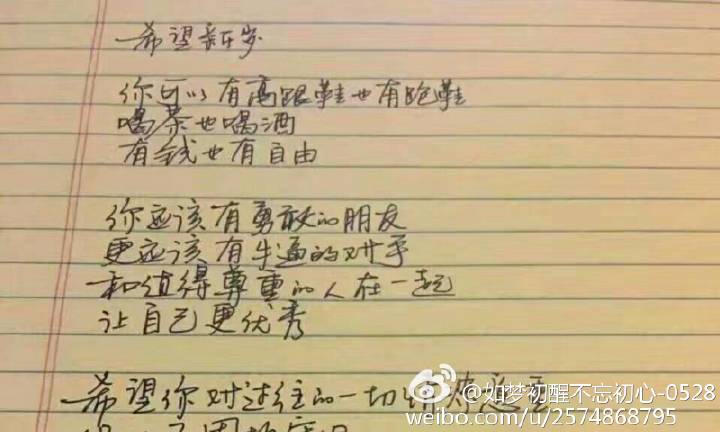 希望新年岁
你可以有高跟鞋也有跑鞋
喝茶也喝酒
有钱也有自由
你应该有勇敢的朋友
更应该有牛逼的对手
和值得尊重的人在一起
让自己更优秀
希望你对过往的一切情深意重
@如梦初醒不忘初心-0528
weibo.com/u/2574868795